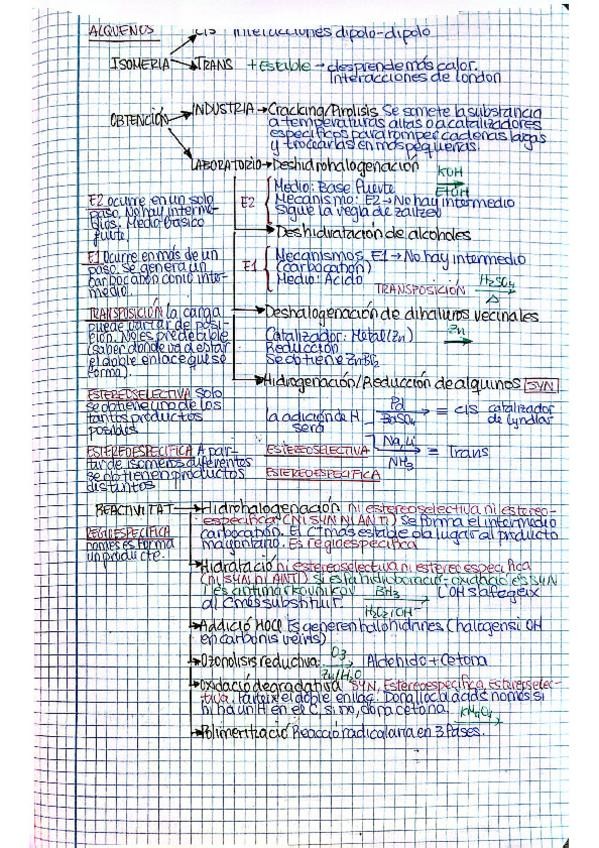 ALQUENOS
CIS interacciones dipolo-dipolo
ISOMERIA TRANS + Estable → desprende más calor.
Interacciones de london
OBTENCIÓN
INDUSTRIA → Cracking/Pirolisis Se somete la substancia
a temperaturas altas o a catalizadores
específicos para romper cadenas largas
y trocearlas en más pequeñas.
LABORATORIO → Deshidrohalogenación KOH
EtOH
E2 Medio: Base fuerte
Mecanismo: E2 → No hay intermedio
Sigue la regla de zaitzev
E2 ocurre en un solo
paso. No hay interme-
dios. Medio básico
fuerte.
Deshidratación de alcoholes
E1 Mecanismos E1 → No hay intermedio
(carbocatión)
Medio: Ácido
TRANSPOSICIÓN H2SO4
Δ
E1 Ocurre en más de un
paso. Se genera un
carbocatión como inter-
medio.
Deshalogenación de dihaluros vecinales
Catalizador: Metal (Zn) Zn
Reducción
Se obtiene ZnBr2
TRANSPOSICIÓN la carga
puede variar de posi-
ción. No es predecible
(saber donde va a estar
el doble enlace que se
forma).
Hidrogenación/Reducción de alquinos SYN
la adición de H
será
Pd
BaSO4 = cis catalizador
de Lyndlar
Na, Li
NH3 = Trans
ESTEREOSELECTIVA
ESTEREOESPECIFICA
ESTEREOSELECTIVA Solo
se obtiene uno de los
tantos productos
posibles.
ESTEREOESPECIFICA A par-
tir de isomeros diferentes
se obtienen productos
distintos
REACTIVITAT → Hidrohalogenación ni estereoselectiva ni estereo-
especifica (NI SYN NI ANTI) Se forma el intermedio
carbocatión. El C+ más estable da lugar al producto
mayoritario. Es regioespecifica
REGIOESPECIFICA
només es forma
un producte.
Hidratació ni estereoselectiva ni estereoespecifica
(ni SYN ni ANTI) si esta hidroboració-oxidació es SYN
i es antimarkovnikov BH3 L'OH s'afegeix
al C més substituït. H2O2/OH-
Addició HOCl Es generen halohidrines (halogens i OH
en carbonis veïns)
Ozonolisis reductiva: O3
Zn/H2O Aldehido + Cetona
Oxidació degradativa SYN, Estereoespecifica, Estereoselec-
tiva. Parteix el doble enllaç. Dona lloc al àcid només si
hi ha un H en el C, si no, dona cetona. KMnO4
Polimerització Reacció radicalaria en 3 fases.